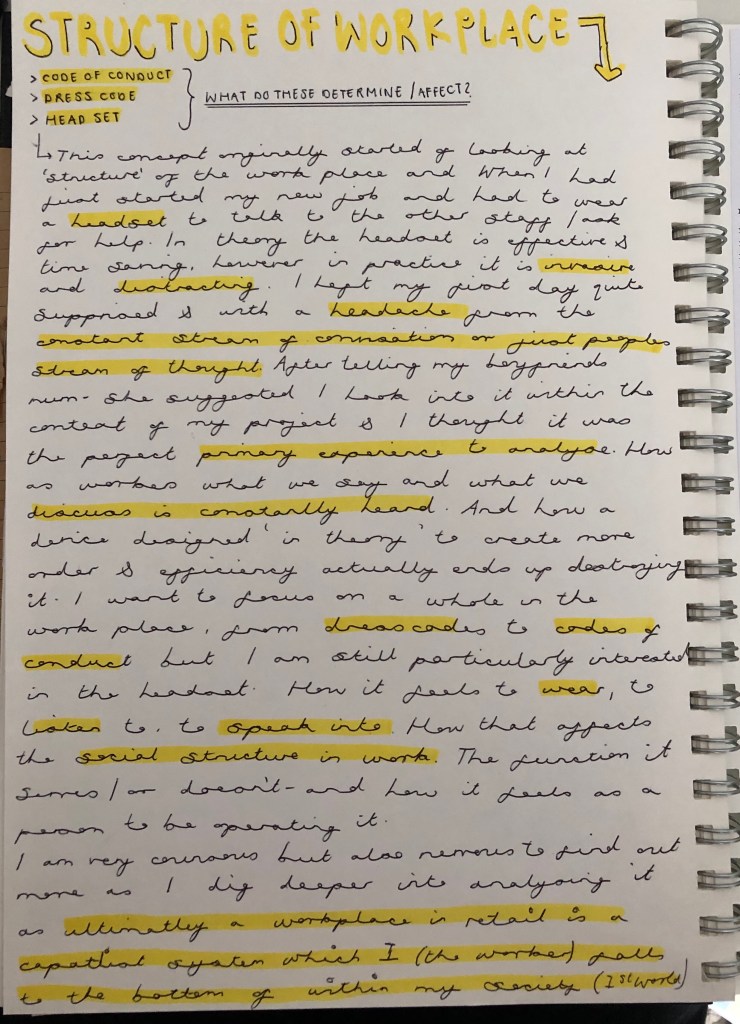 STRUCTURE OF WORKPLACE
> CODE OF CONDUCT
> DRESS CODE
> HEAD SET
WHAT DO THESE DETERMINE / AFFECT?
This concept originally started of looking at
'structure' of the work place and when I had
just started my new job and had to wear
a headset to talk to the other staff / ask
for help. In theory the headset is effective &
time saving, however in practice it is invasive
and distracting. I left my first day quite
supprised & with a headache from the
constant stream of conversation or just peoples
stream of thought. After telling my boyfriends
mum - she suggested I look into it within the
context of my project & I thought it was
the perfect primary experience to analyse. How
as workers what we say and what we
discuss is constantly heard. And how a
device designed 'in theory' to create more
order & efficiency actually ends up destroying
it. I want to focus on a whole in the
work place, from dresscodes to codes of
conduct but I am still particularly interested
in the headset. How it feels to wear, to
listen to, to speak into. How that affects
the social structure in work. The function it
serves / or doesn't - and how it feels as a
person to be operating it.
I am very courious but also nervous to find out
more as I dig deeper into analysing it
as ultimatly a workplace in retail is a
capatlist system which I (the worker) falls
to the bottom of within my society (1st World)